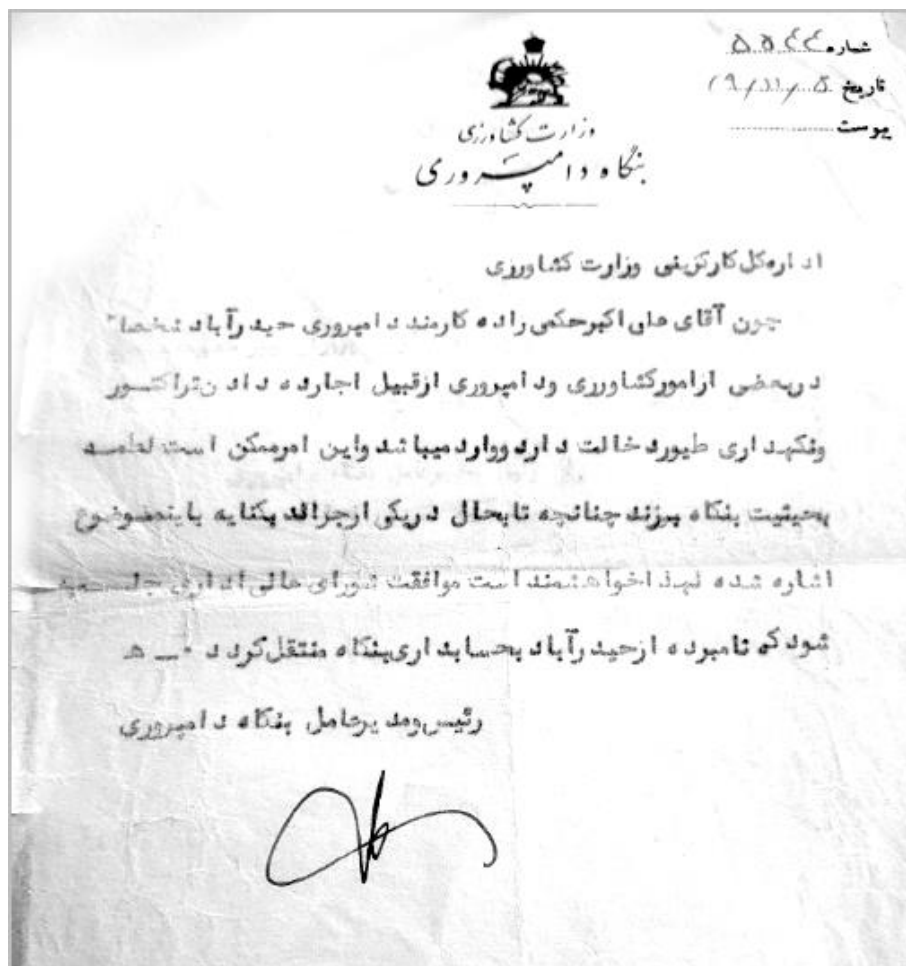 شماره ۵۵۴۴
تاریخ
پیوست
وزارت کشاورزی
بنگاه دامپروری
اداره کل کارگزینی وزارت کشاورزی
چون آقای علی اکبر حکمی زاده کارمند دامپروری حیدرآباد شخصاً
در بعضی از امور کشاورزی و دامپروری از قبیل اجاره دادن تراکتور
ونگهداری طیور دخالت دارد ووارد میباشد واین امر ممکن است لطمه
بحیثیت بنگاه بزند چنانچه تابحال دریکی از جرائد بکنایه باینموضوع
اشاره شده لهذا خواهشمند است موافقت شورای عالی اداری جلب
شود که نامبرده از حیدرآباد بحسابداری بنگاه منتقل گردد
رئیس ومدیرعامل بنگاه دامپروری